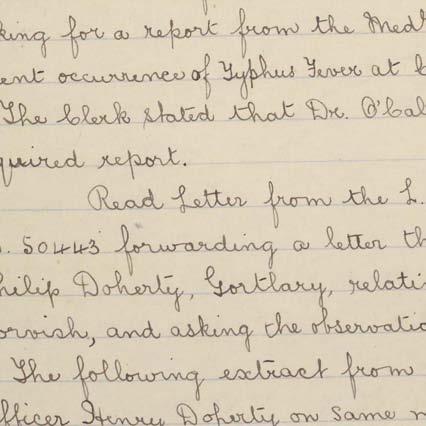 king for a report from the Med
ent occurrence of Typhus Fever at
The Clerk stated that Dr. O'Cal
quired report.
Read Letter from the L.
. 50443 forwarding a letter th
hilip Doherty, Gortlary, relati
orvish, and asking the observatio
The following extract from
fficer Henry Doherty on same m